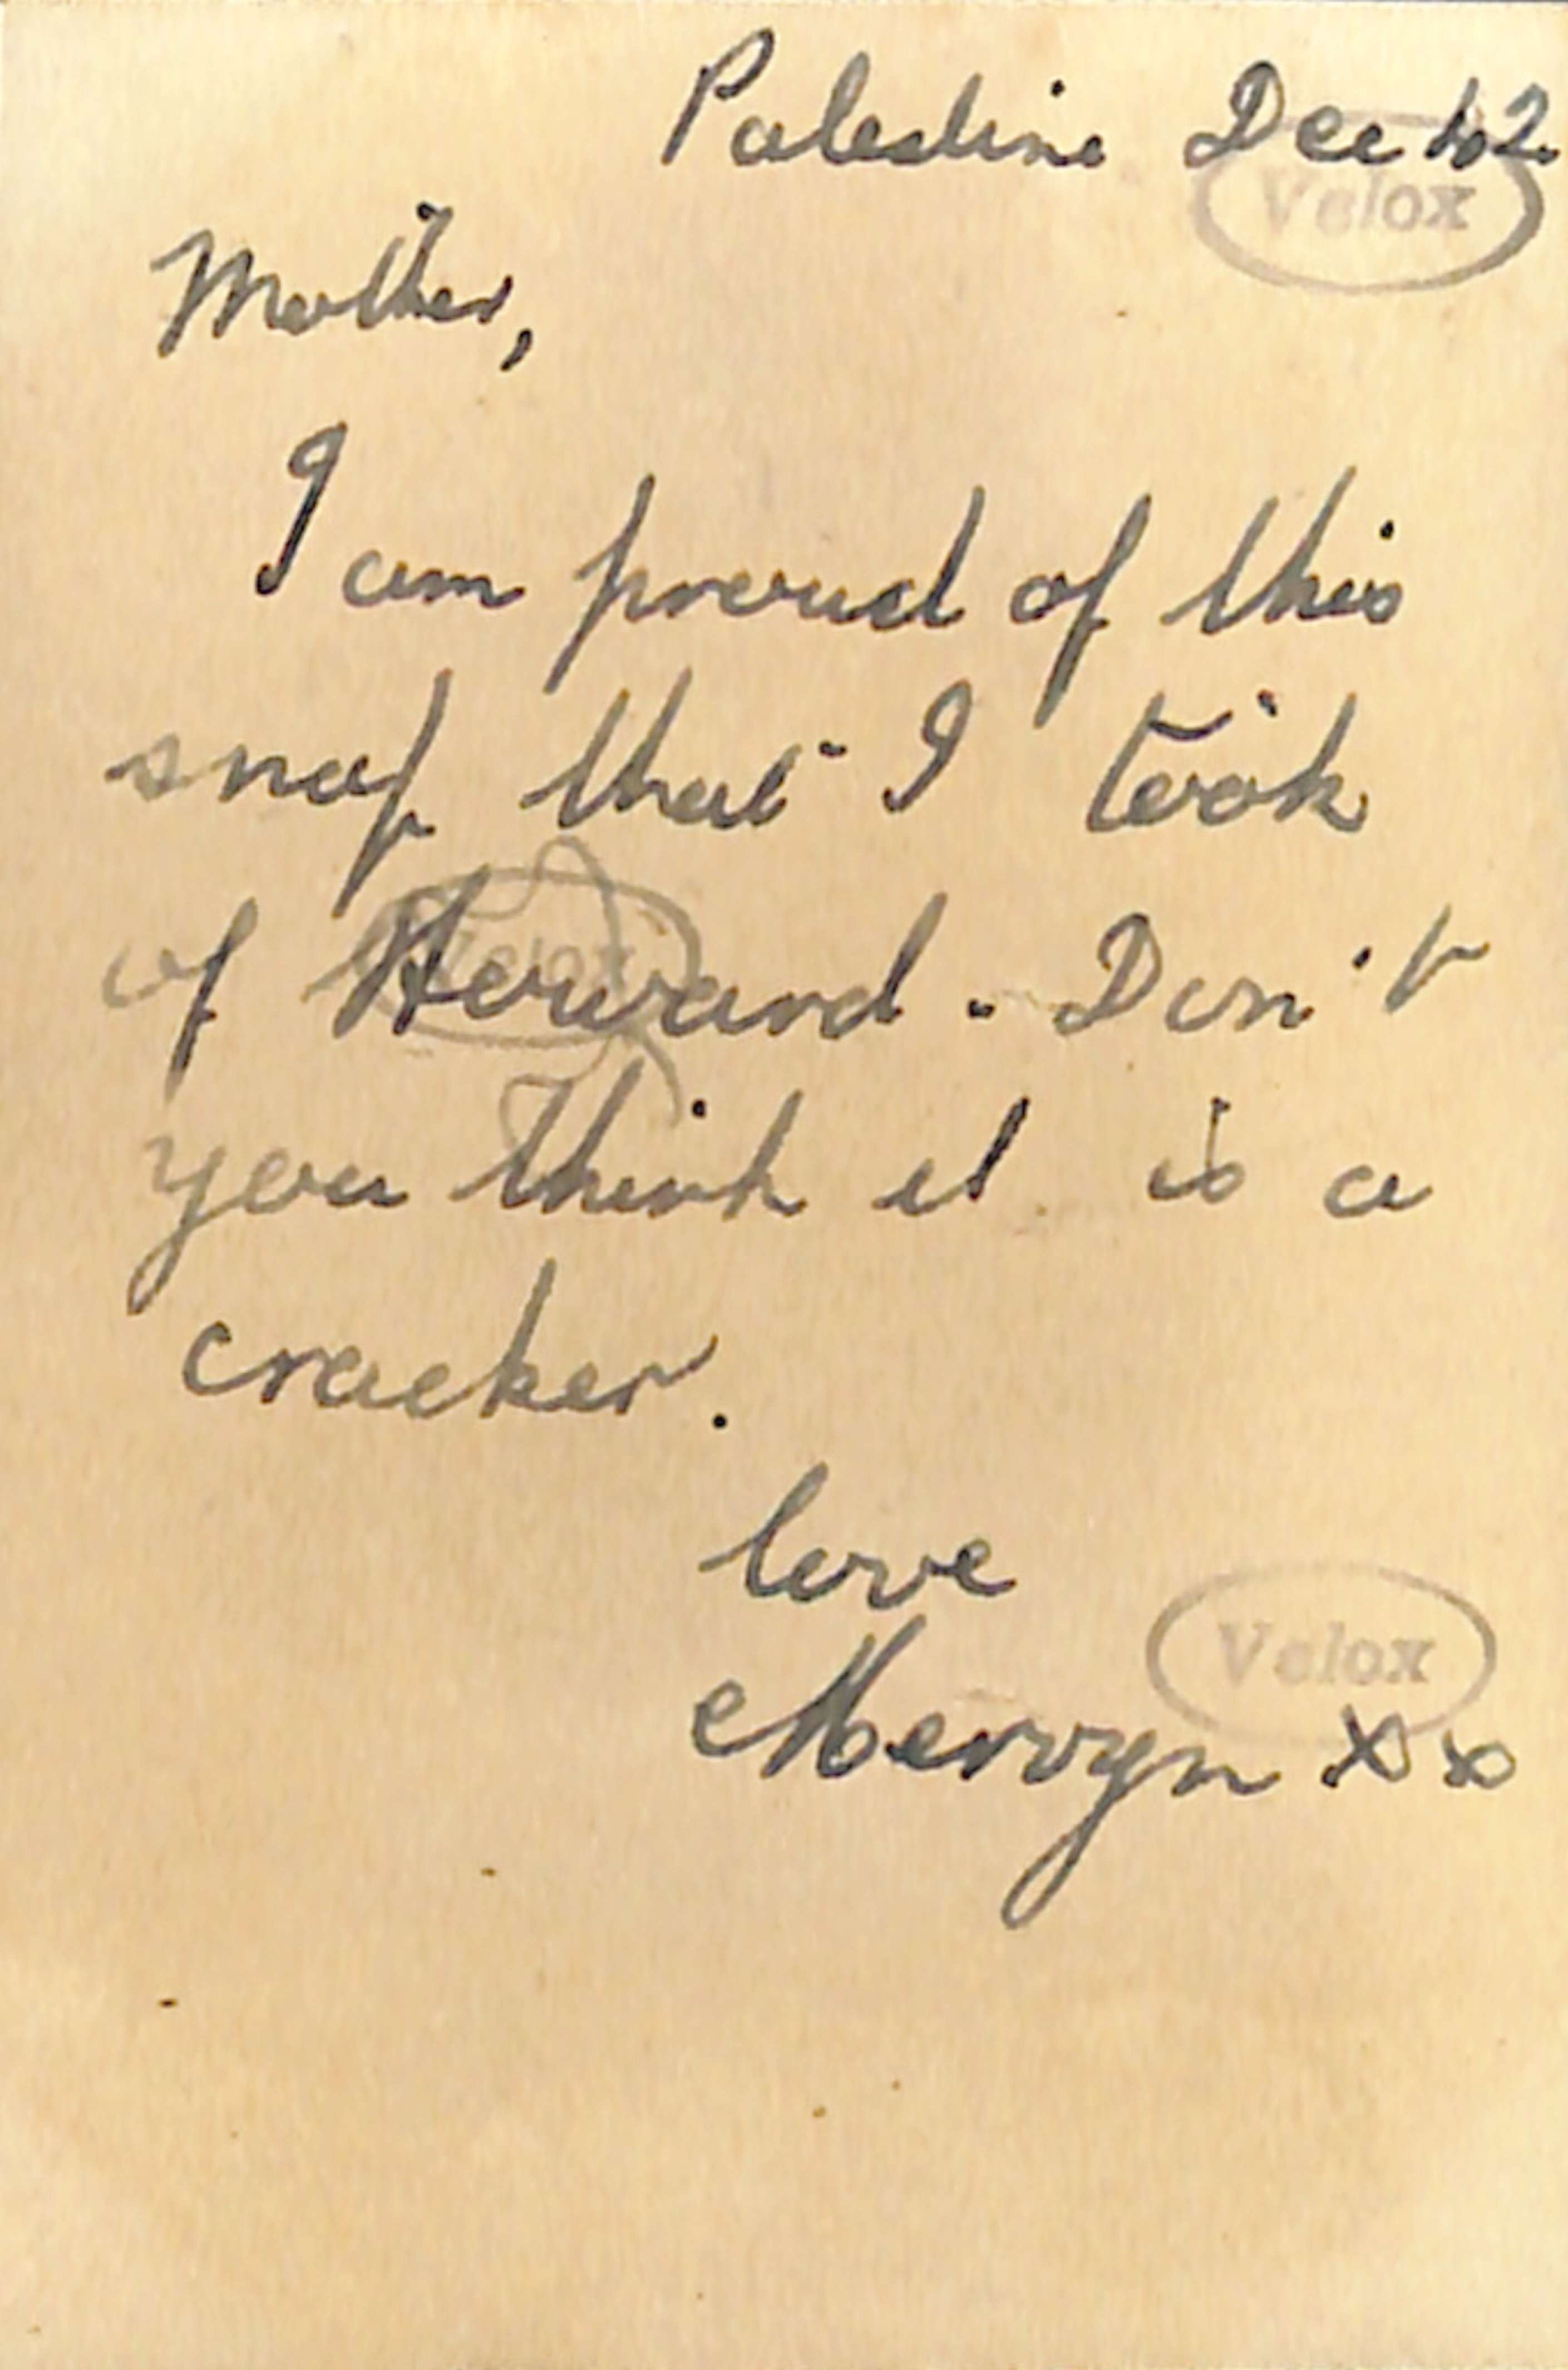 Palestine Dec 42.
Velox
Mother,
I am proud of this
snap that I took
of Howard. Don't
Velox
you think it is a
cracker.
love
Velox
Mervyn xx